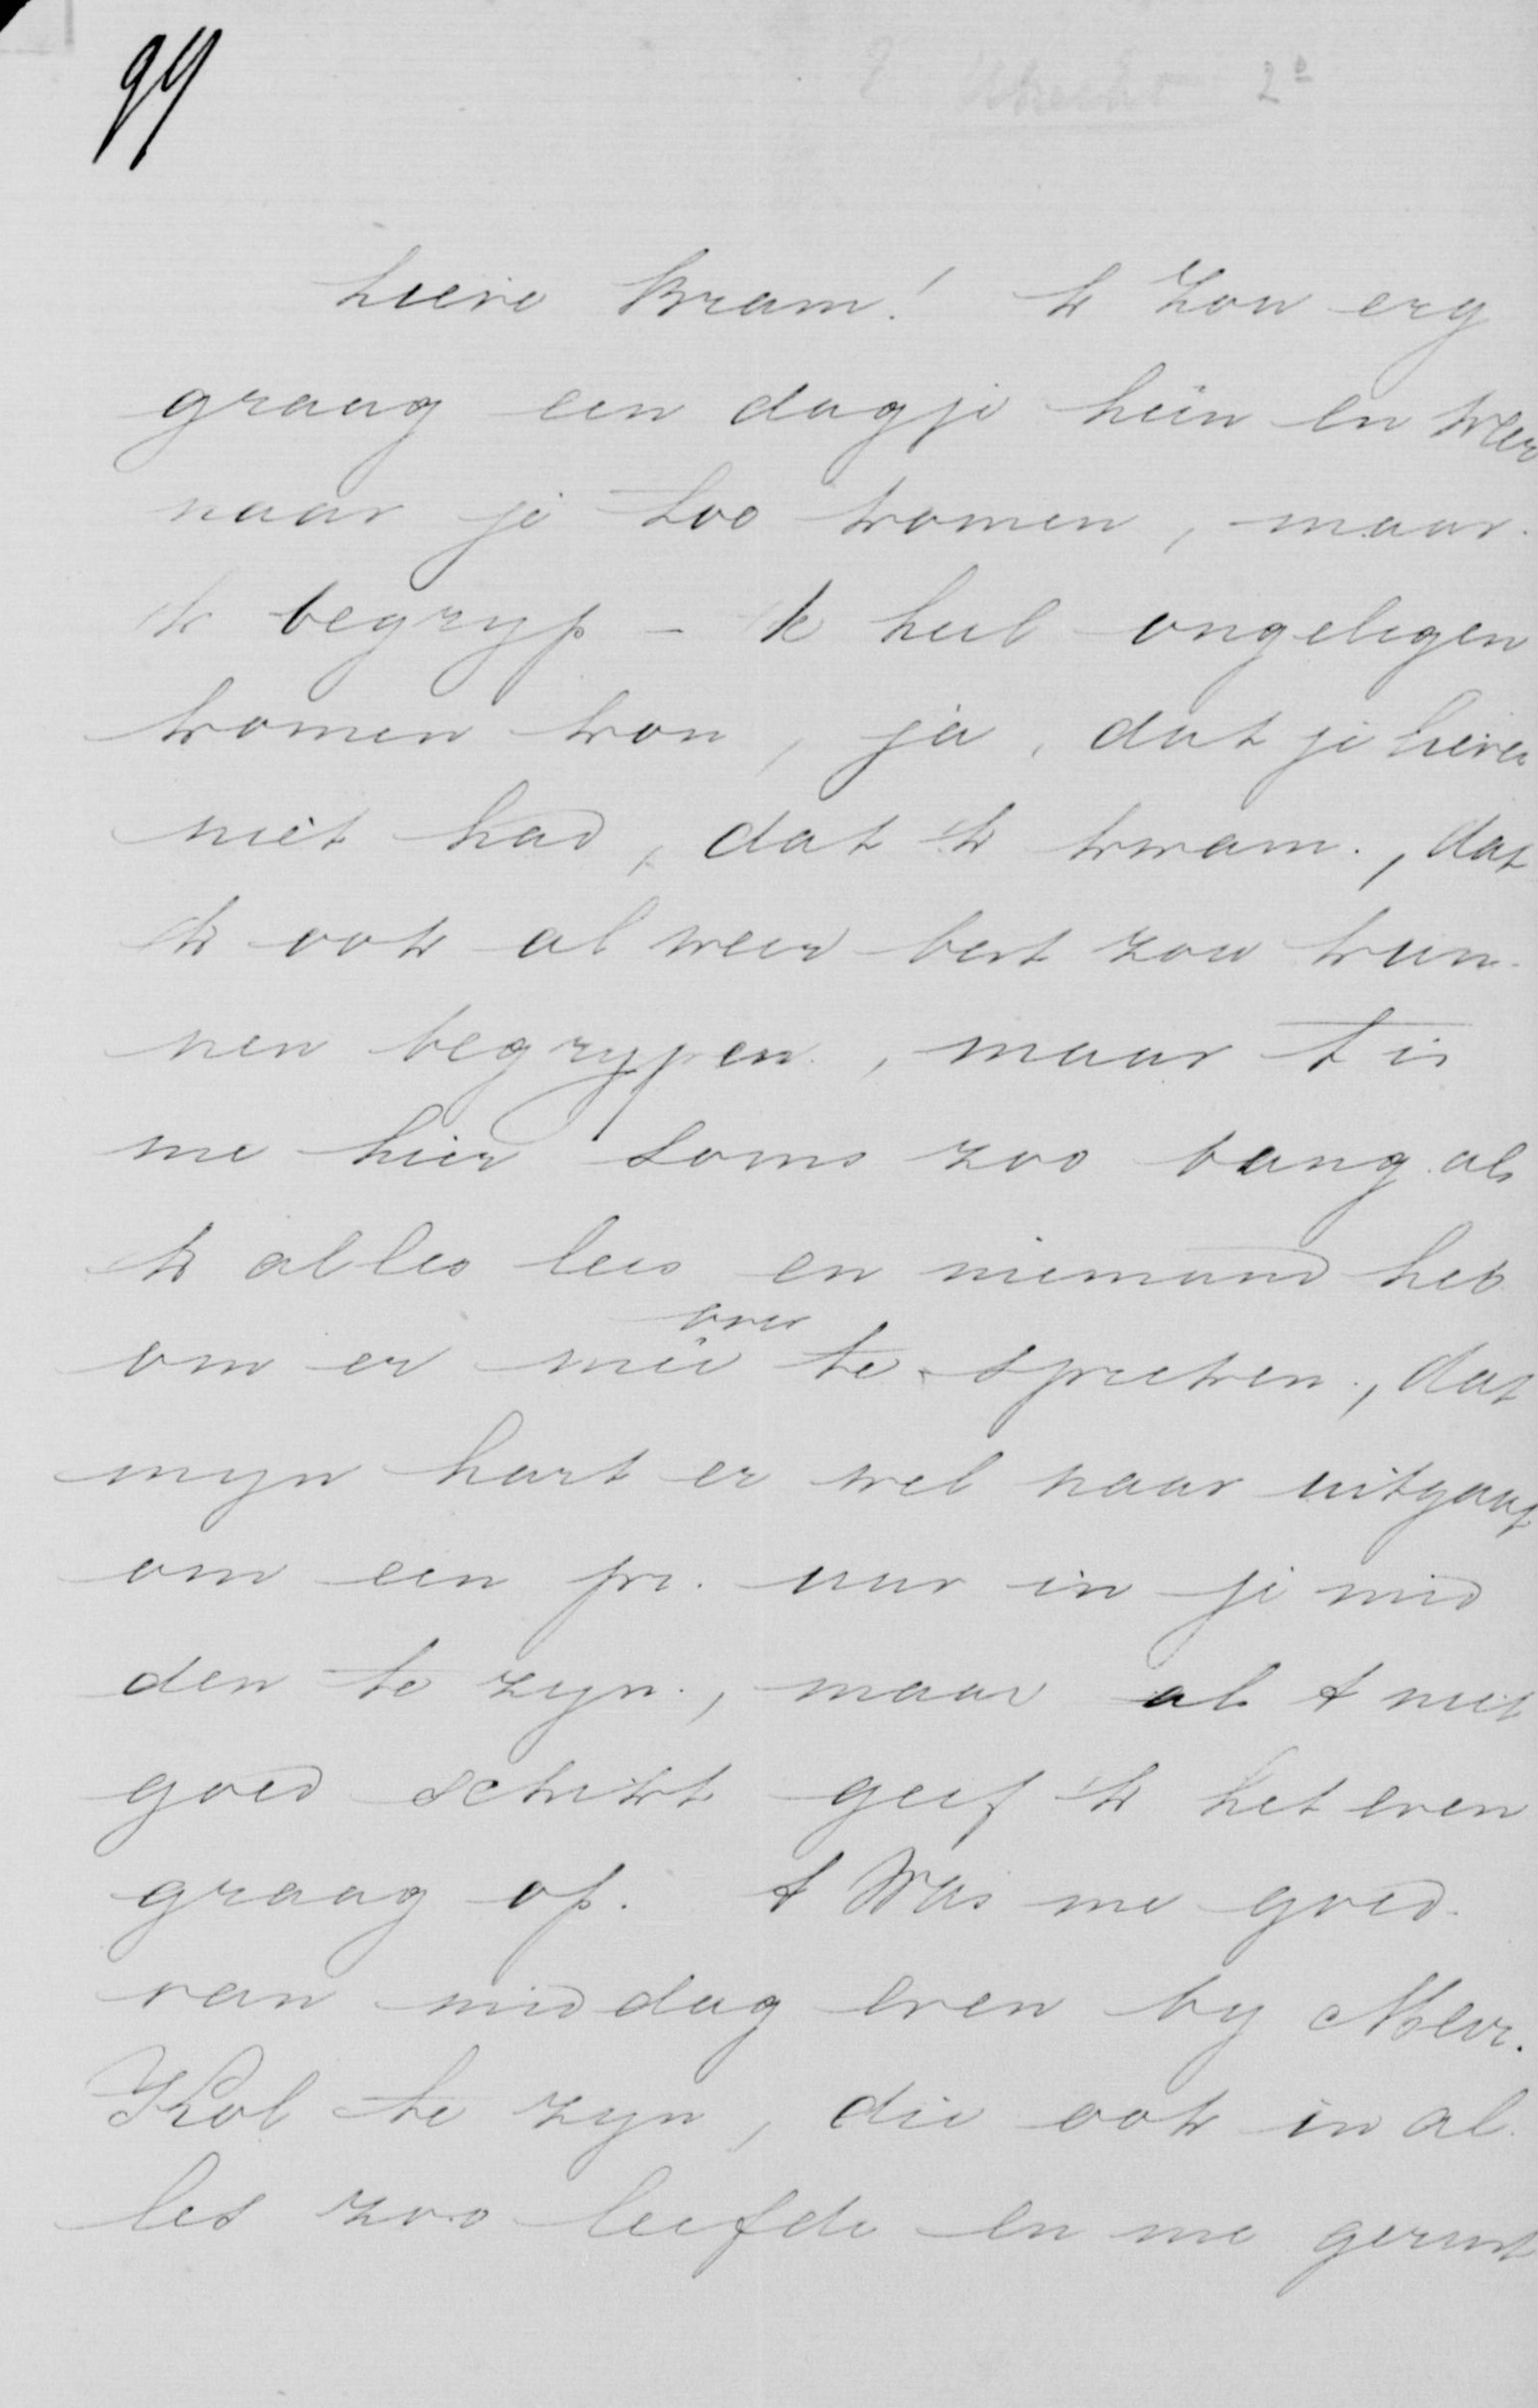 99
Utrecht 2e
Lieve Bram! Ik zou erg
graag een dagje heen en weer
naar je too komen, maar
ik begryp - ik heel ongelegen
komen kon, ja, dat je liever
niet had, dat ik kwam., dat
ik ook al weer best zou kun-
nen begrypen., maar t is
me hier soms zoo bang als
ik alles lees en niemand heb
over
om er meê te spreeken., dat
myn hart er wel naar uitgaat
om een pr. uur in je mid
den te zyn., maar als t niet
goed schikt geef ik het even
graag op. t Was me goed
van middag even by Mevr.
Kol te zyn, die ook in al
les zoo leefde en me gerust